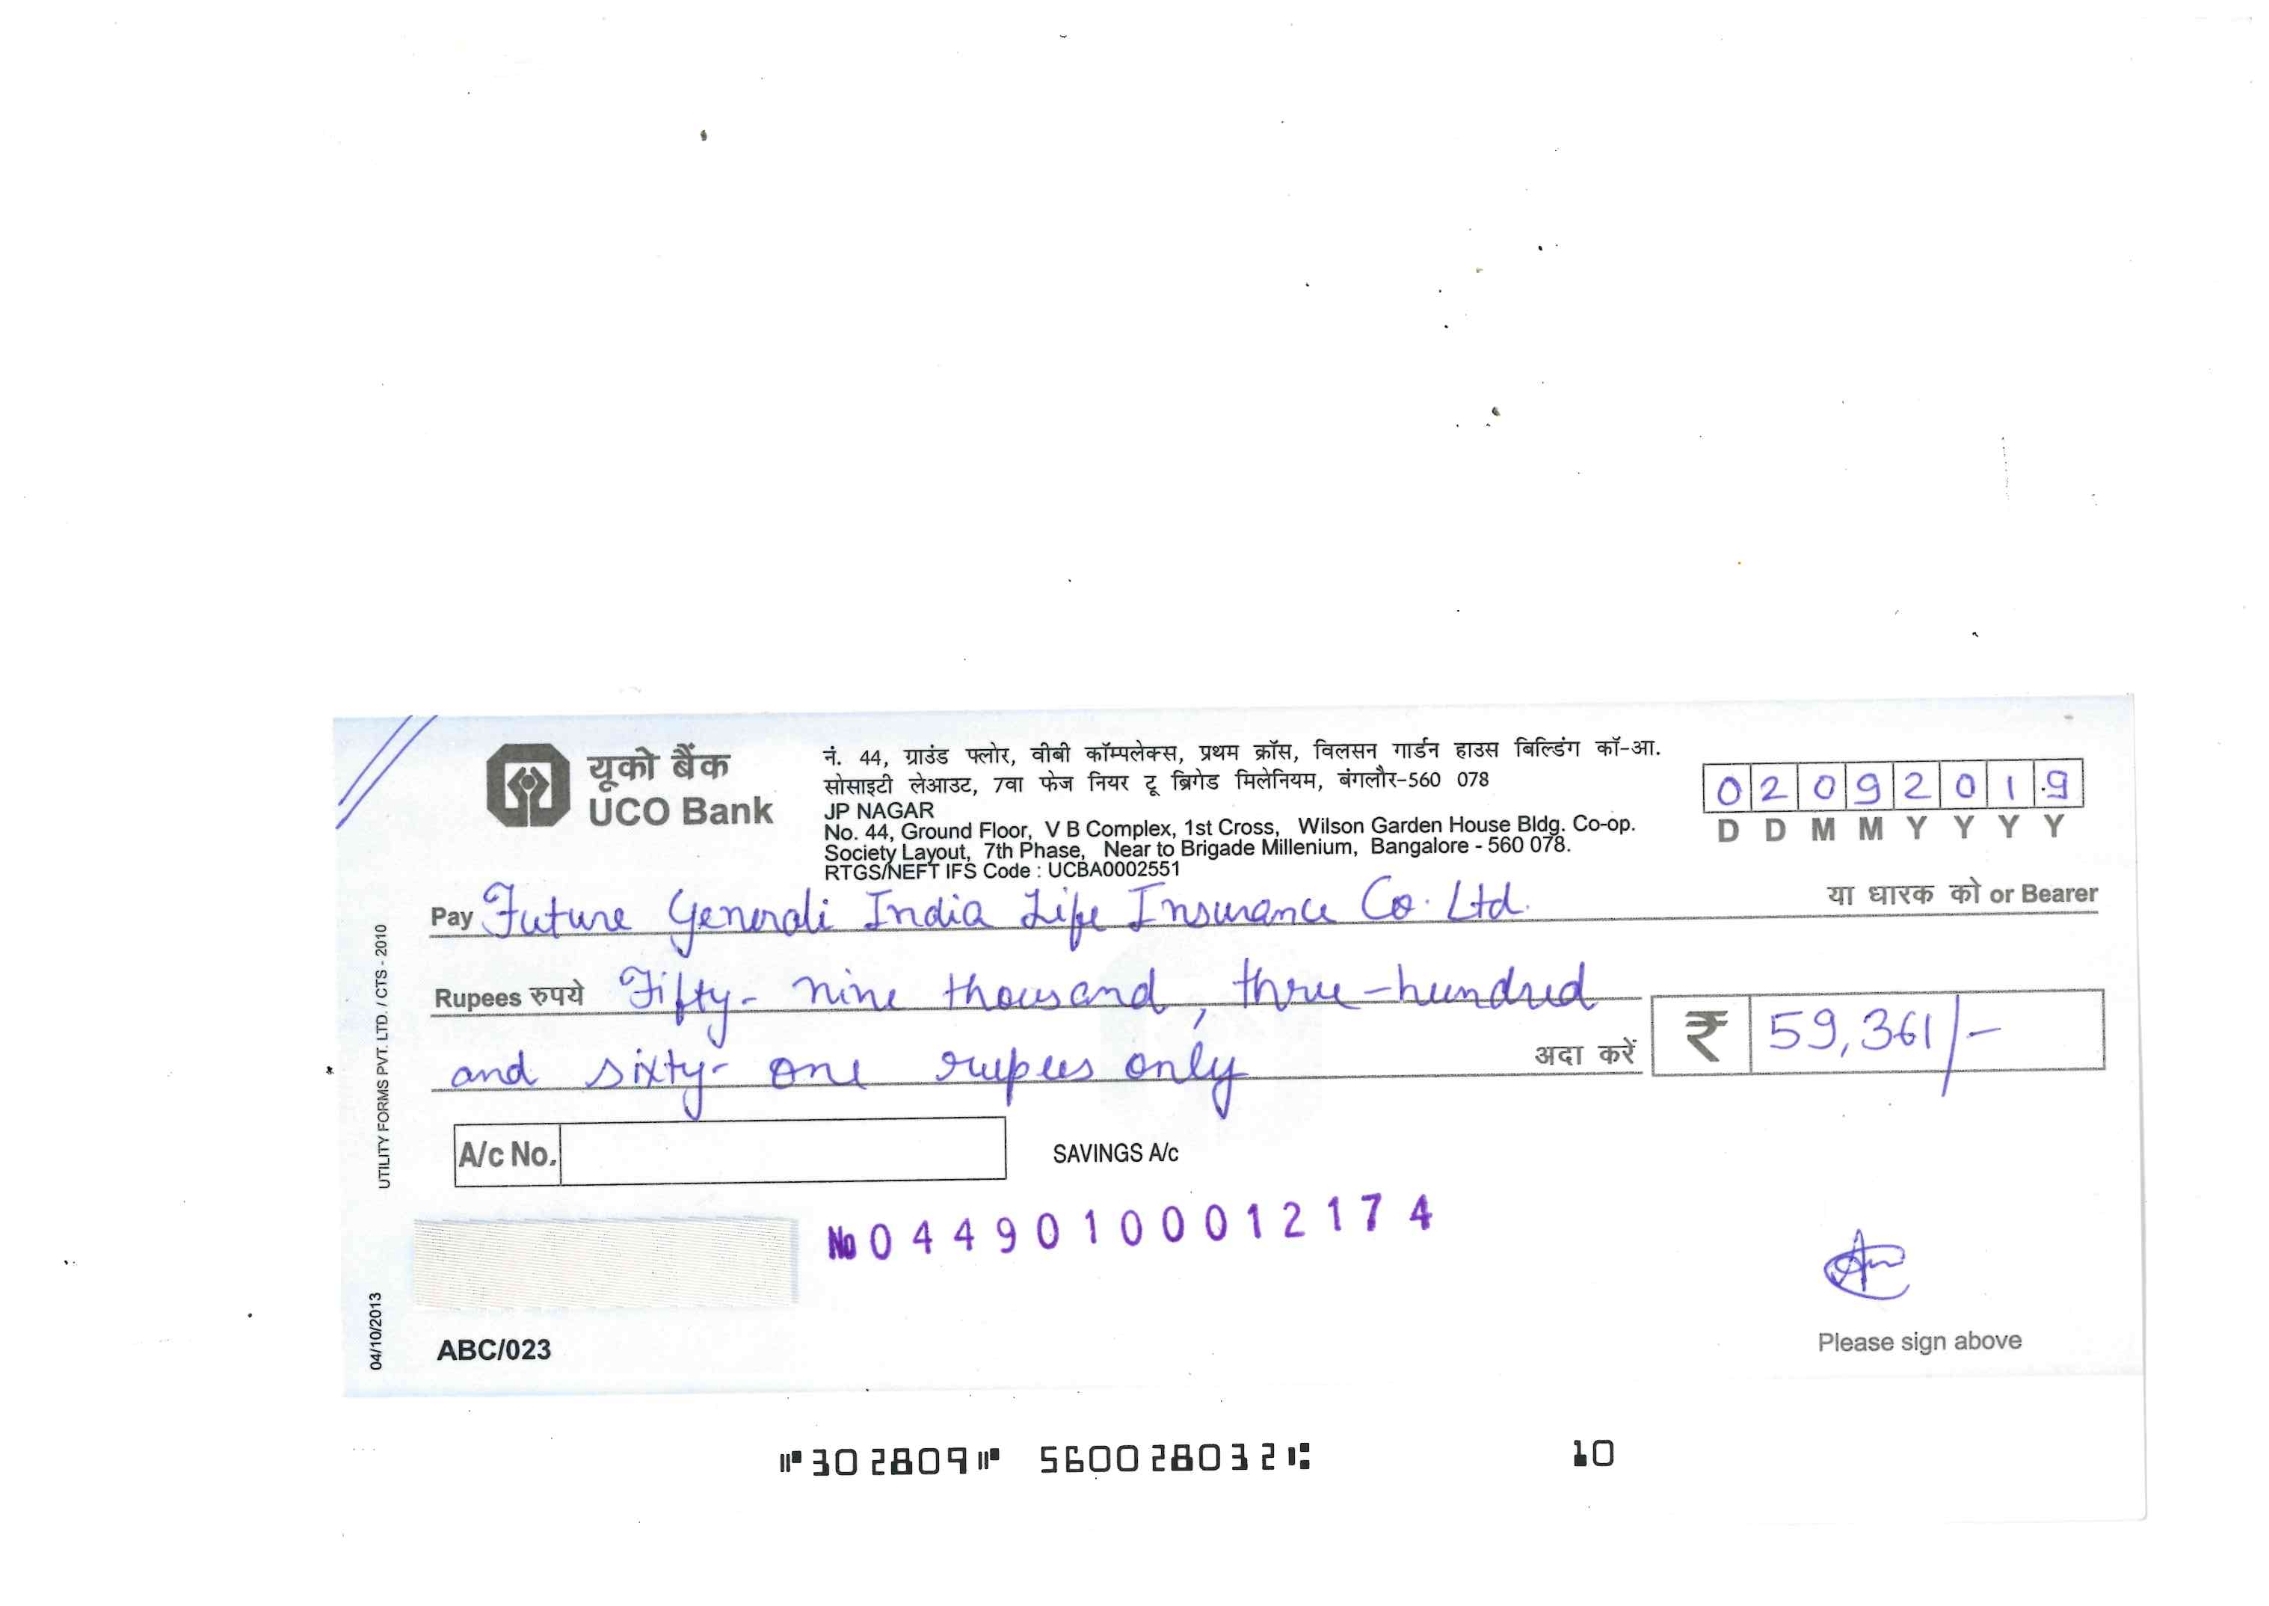 यूको बैंक
UCO Bank
नं. 44, ग्राउंड फ्लोर, वीबी कॉम्पलेक्स, प्रथम क्रॉस, विलसन गार्डन हाउस बिल्डिंग कॉ-आ.
सोसाइटी लेआउट, 7वा फेज नियर टू ब्रिगेड मिलेनियम, बंगलौर-560 078
JP NAGAR
No. 44, Ground Floor, V B Complex, 1st Cross, Wilson Garden House Bldg. Co-op.
Society Layout, 7th Phase, Near to Brigade Millenium, Bangalore - 560 078.
RTGS/NEFT IFS Code : UCBA0002551
02092019
D D M M Y Y Y Y
Pay Future Generali India Life Insurance Co. Ltd. या धारक को or Bearer
Rupees रुपये Fifty-nine thousand, three-hundred
and sixty-one rupees only अदा करें ₹ 59,361/-
A/c No. SAVINGS A/c
No 04490100012174
ABC/023
Please sign above
UTILITY FORMS PVT. LTD. / CTS - 2010
04/10/2013
⑈302809⑈ 560028032⑆ 10